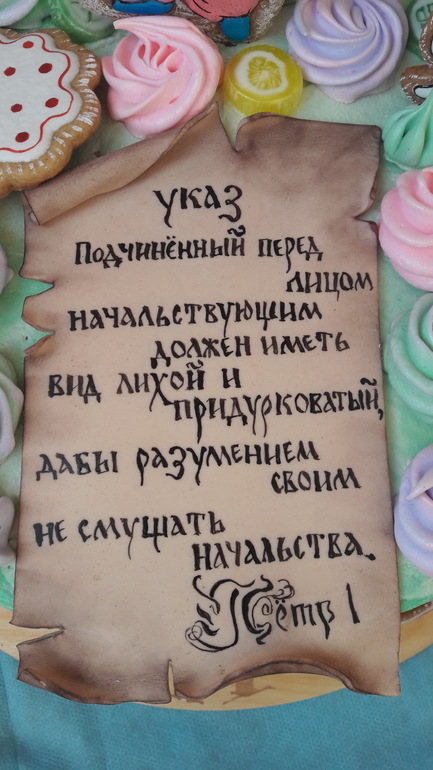 указ
Подчинённый перед
лицом
начальствующим
должен иметь
вид лихой и
придурковатый,
дабы разумением
своим
не смущать
начальства.
Пётр 1